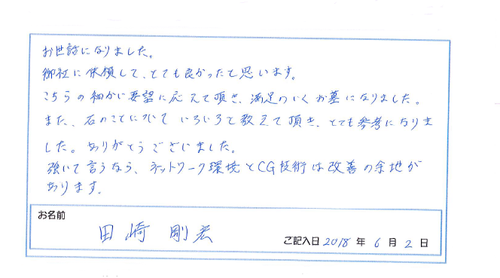 お世話になりました。
御社に依頼して、とても良かったと思います。
こちらの細かい要望に応えて頂き、満足のいくお墓になりました。
また、石のことについていろいろと教えて頂き、とても参考になりま
した。ありがとうございました。
強いて言うなら、ネットワーク環境とCG技術は改善の余地が
あります。
お名前
田崎 剛宏
ご記入日 2018 年 6 月 2 日